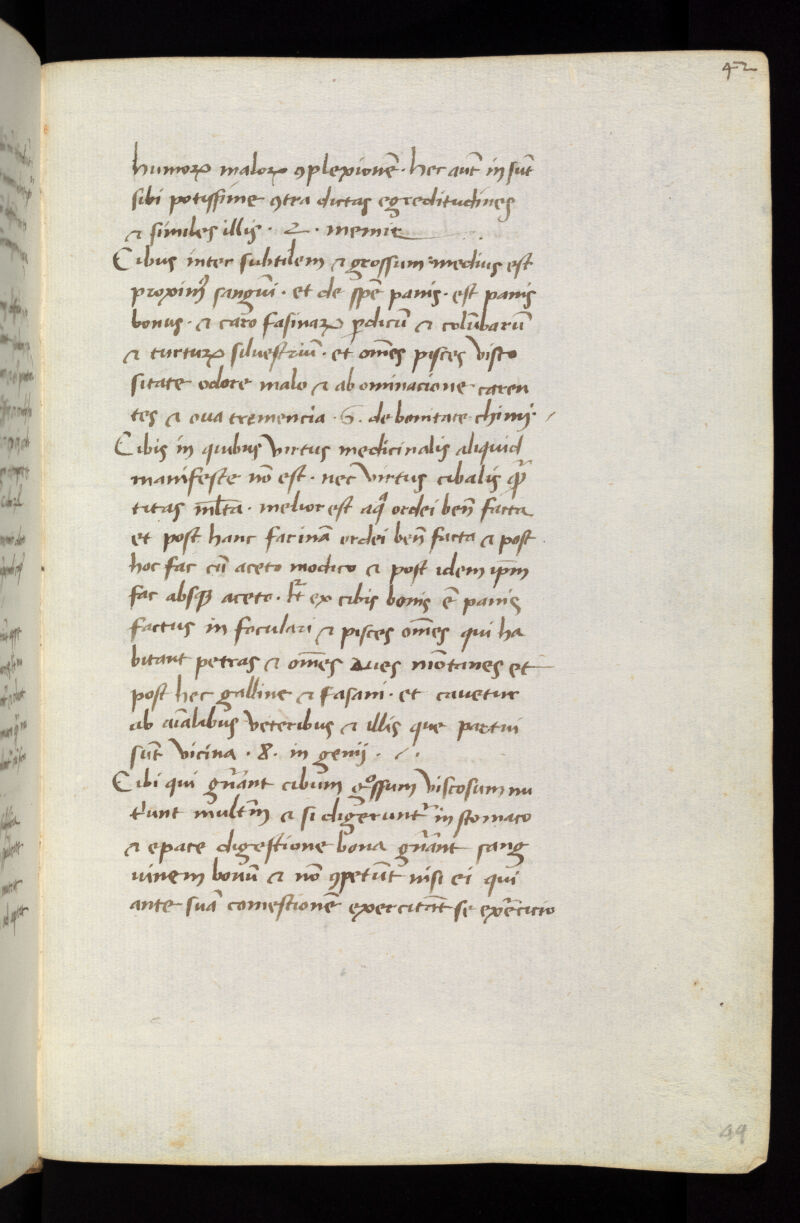 42
humoꝝ maloꝝ ꝯplexionē · hec aūt in sūt
sibi potissime ꝯtra dictas egreditudines
⁊ similes illis · 2 ·
Cibus inter subtilem ⁊ grossum medius est
proximꝰ sangui̅ · et de sp̄e panis · est panis
bonus · ⁊ caro fasinaꝝ ꝑdicū ⁊ colūbarū
⁊ turturꝝ silvestriū · et om̄es pisces visco
sitate odore malo ⁊ abominacione caren
tes ⁊ oua tremencia · 6 · de bonitate chimi ·
Cibis in quibus virtus medicinalis aliquid
manifeste nō est · nec virtus cibalis
titas ml̅ta · melior est aq̄ ordei ben̄ facta
et post hanc farinā ordei ben̄ facta ⁊ post
hoc far cū aceto modico ⁊ post idem ip̄m
far absqꝫ aceto · ex cibis bonis ē panis
factus in foculari ⁊ pisces om̄es qui ha
bitant petras ⁊ om̄es aues mōtanes et
post hec galline ⁊ fasani · et cavetur
ab aīalibus veteribus ⁊ illis que partui
sūt vicina · 8 · in genij ·
Cibi qui gn̄ant cibum gͦssum viscosum nu
t͛unt multm̄ ⁊ si digerunt᷑ in stomaco
⁊ epate digestione bona gn̄ant sang
uinem bonū ⁊ nō ꝯpetūt nisi ei qui
ante suā comestionē exercitāt se exērcicio
49